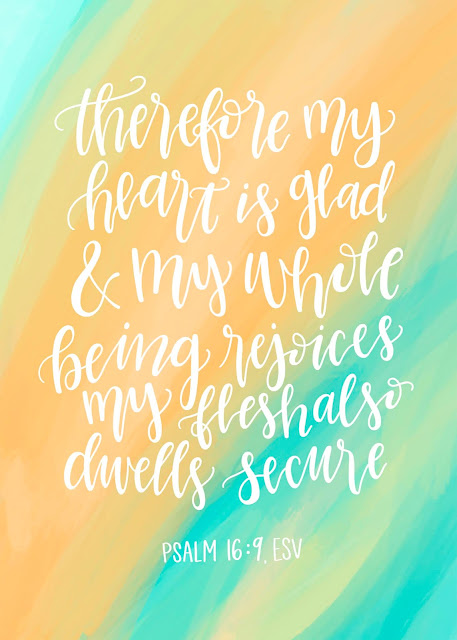 therefore my
heart is glad
& my whole
being rejoices
my flesh also
dwells secure
PSALM 16:9, ESV